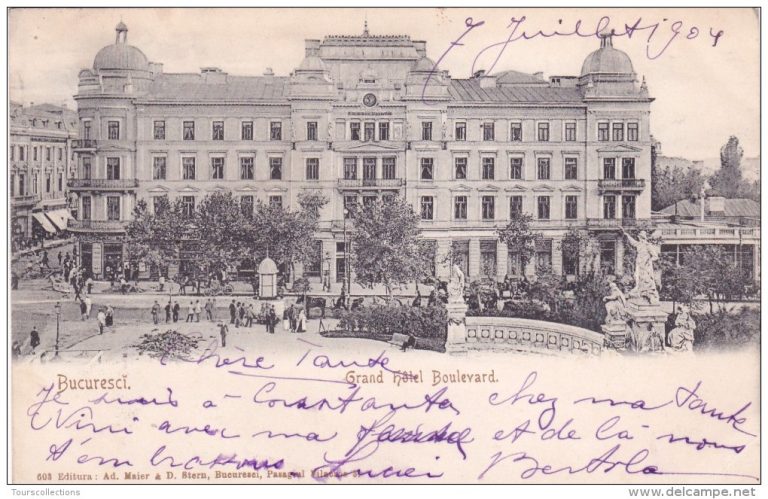 7 Juillet 1904
Chère Tante
Bucuresci. Grand Hôtel Boulevard.
Je suis à Constanta chez ma tante
Nini avec ma et de là nous
t'embrassons Bertola
603 Editura: Ad. Maier & D. Stern, Bucuresci, Pasagiul
Tourscollections
www.delcampe.net